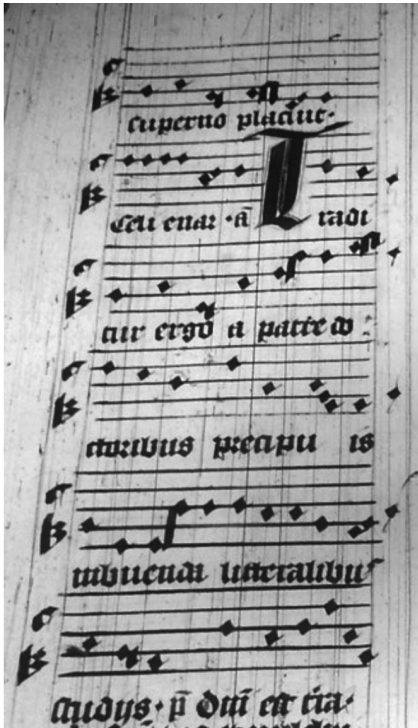 superno placuit.
Celi enar · a͞ Tradi
tur ergo a patre do :
ctoribus precipu is
imbuendi litteralibus
studijs · p̄